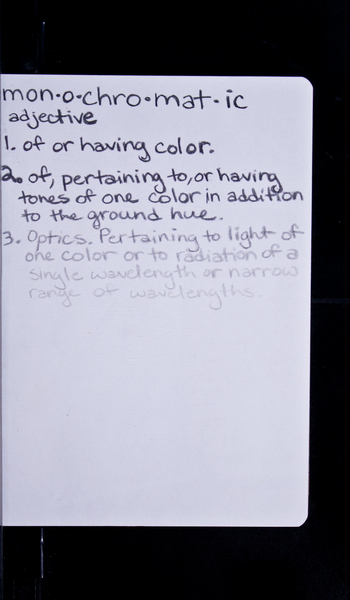 mon·o·chro·mat·ic
adjective
1. of or having color.
2. of, pertaining to, or having
tones of one color in addition
to the ground hue.
3. Optics. Pertaining to light of
one color or to radiation of a
single wavelength or narrow
range of wavelengths.